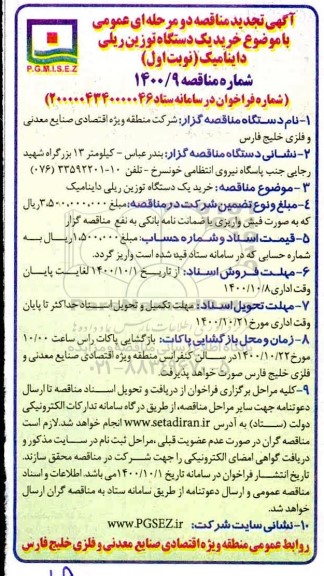 آگهی تجدید مناقصه دو مرحله ای عمومی
با موضوع خرید یک دستگاه توزین ریلی
داینامیک (نوبت اول)
P.G.M.I.S.E.Z
شماره مناقصه ۱۴۰۰/۹
(شماره فراخوان در سامانه ستاد ۲۰۰۰۰۰۴۳۴۰۰۰۰۰۴۶)
۱-نام دستگاه مناقصه گزار: شرکت منطقه ویژه اقتصادی صنایع معدنی
و فلزی خلیج فارس
۲-نشانی دستگاه مناقصه گزار: بندرعباس - کیلومتر ۱۳ بزرگراه شهید
رجایی جنب پاسگاه نیروی انتظامی خونسرخ - تلفن ۱۰-۳۳۵۹۲۲۰۱ (۰۷۶)
۳- موضوع مناقصه: خرید یک دستگاه توزین ریلی داینامیک
۴-مبلغ ونوع تضمین شرکت در مناقصه: مبلغ ۳,۵۰۰,۰۰۰,۰۰۰ریال
که به صورت فیش واریزی یا ضمانت نامه بانکی به نفع مناقصه گزار
۵-قیمت اسناد و شماره حساب: مبلغ ۱,۵۰۰,۰۰۰ریال به
شماره حسابی که در سامانه ستاد قید شده است واریز گردد.
۶-مهلت فروش اسناد: از تاریخ ۱۴۰۰/۱۰/۱ لغایت پایان
وقت اداری ۱۴۰۰/۱۰/۸
۷-مهلت تحویل اسناد: مهلت تکمیل و تحویل اسناد حداکثر تا پایان
وقت اداری مورخ ۱۴۰۰/۱۰/۲۱
۸- زمان ومحل بازگشایی پاکات: بازگشایی پاکات راس ساعت ۱۰/۰۰
مورخ ۱۴۰۰/۱۰/۲۲ در سالن کنفرانس منطقه ویژه اقتصادی صنایع معدنی و
فلزی خلیج فارس صورت خواهد پذیرفت
۹-کلیه مراحل برگزاری فراخوان از دریافت و تحویل اسناد مناقصه تا ارسال
دعوتنامه جهت سایر مراحل مناقصه، از طریق درگاه سامانه تدارکات الکترونیکی
دولت (ستاد) به آدرس www.setadiran.ir انجام خواهد شد. لازم است
مناقصه گران در صورت عدم عضویت قبلی ،مراحل ثبت نام در سایت مذکور و
دریافت گواهی امضای الکترونیکی را جهت شرکت در مناقصه محقق سازند.
تاریخ انتشار فراخوان در سامانه تاریخ ۱۴۰۰/۱۰/۱ می باشد. اطلاعات و اسناد
مناقصه عمومی و ارسال دعوتنامه از طریق سامانه ستاد به مناقصه گران ارسال
خواهد شد.
۱۰-نشانی سایت شرکت: www.PGSEZ.ir
روابط عمومی منطقه ویژه اقتصادی صنایع معدنی و فلزی خلیج فارس